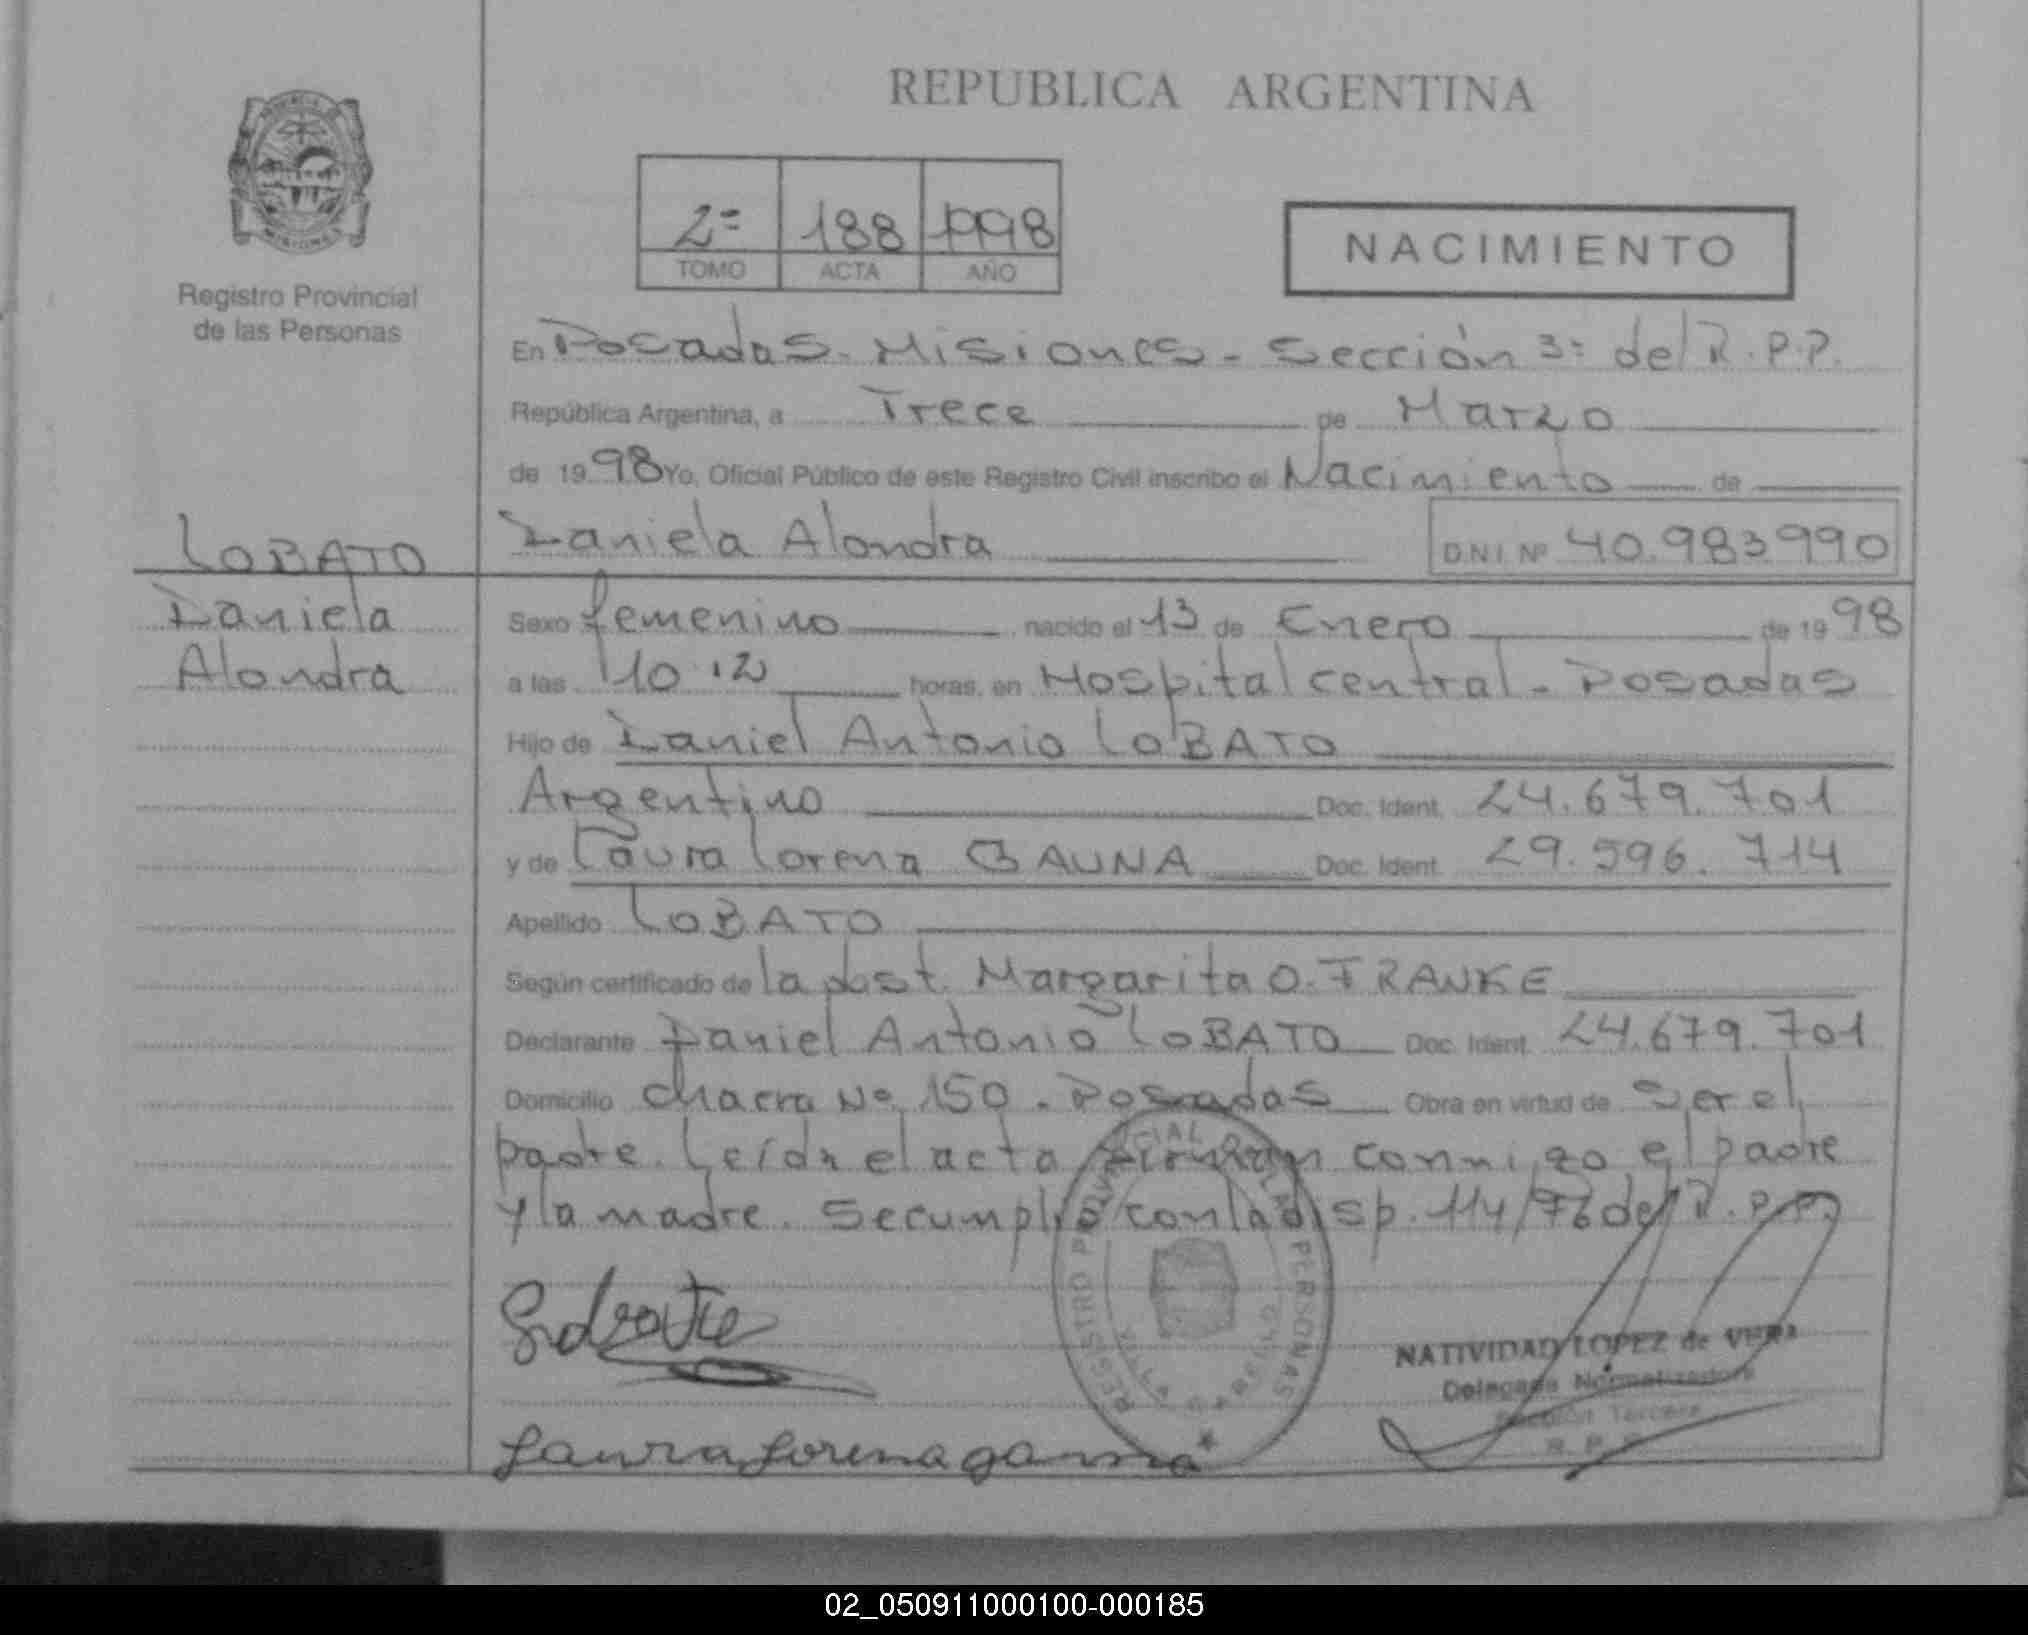 REPUBLICA ARGENTINA
2º 188 1998
TOMO ACTA AÑO
NACIMIENTO
Registro Provincial
de las Personas
En Posadas - Misiones - Sección 3º del R.P.P.
República Argentina, a Trece de Marzo
de 1998 Yo, Oficial Público de este Registro Civil inscribo el Nacimiento de
Daniela Alondra D.N.I. Nº 40.983990
LOBATO
Daniela
Alondra
Sexo femenino nacido el 13 de Enero de 1998
a las 10.12 horas, en Hospital central - Posadas
Hijo de Daniel Antonio LOBATO
Argentino Doc. Ident. 24.679.701
y de Laura Lorena GAUNA Doc. Ident. 29.596.714
Apellido LOBATO
Según certificado de la obst. Margarita O. FRANKE
Declarante Daniel Antonio LOBATO Doc. Ident. 24.679.701
Domicilio Chacra Nº 150 - Posadas Obra en virtud de ser el
padre. Leída el acta firman conmigo el padre
y la madre. Se cumplió con la disp. 114/76 del R.P.P.
REGISTRO PROVINCIAL DE LAS PERSONAS
NATIVIDAD LOPEZ de VERA
Delegada Normalizadora
Sección Tercera
R. P. P.
Laura Lorena gauna
02_050911000100-000185